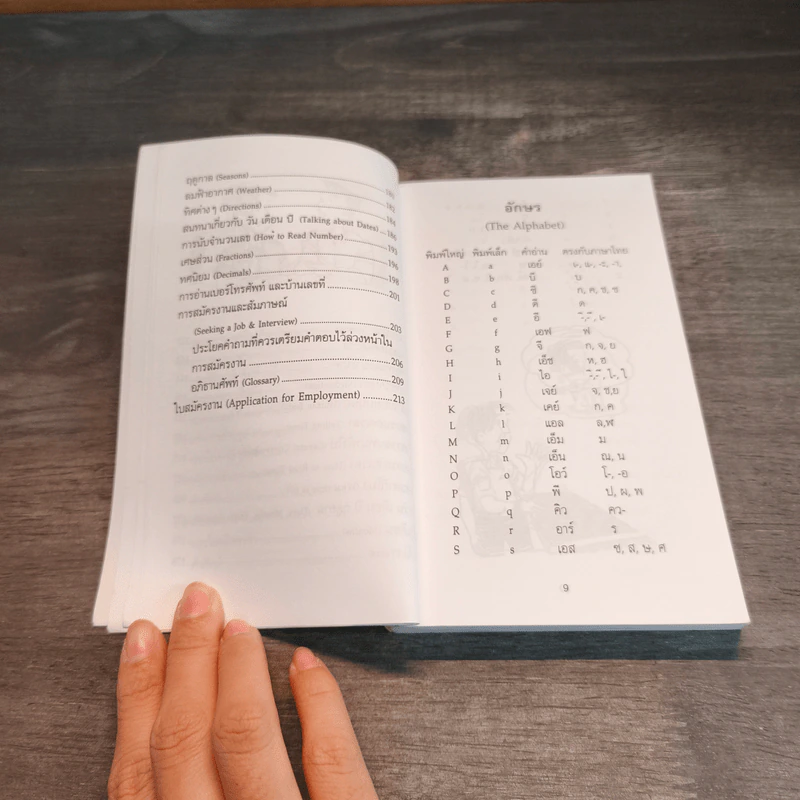 ฤดูกาล (Seasons)
ลมฟ้าอากาศ (Weather)
ทิศต่างๆ (Directions) 182
สนทนาเกี่ยวกับ วัน เดือน ปี (Talking about Dates)
การนับจำนวนเลข (How to Read Number) 186
เศษส่วน (Fractions) 193
ทศนิยม (Decimals) 196
การอ่านเบอร์โทรศัพท์ และบ้านเลขที่ 198
การสมัครงานและสัมภาษณ์ 201
(Seeking a Job & Interview) 203
ประโยคคำถามที่ควรเตรียมคำตอบไว้ล่วงหน้าใน
การสมัครงาน 206
อภิธานศัพท์ (Glossary) 209
ใบสมัครงาน (Application for Employment) 213
อักษร
(The Alphabet)
พิมพ์ใหญ่ พิมพ์เล็ก คำอ่าน ตรงกับภาษาไทย
A a เอย์
B b บี บ
C c ซี ก, ค, ซ, ช
D d ดี ด
E e อี
F f เอฟ ฟ
G g จี ก, จ, ย
H h เอ็ช ห, ฮ
I i ไอ
J j เจย์ จ, ช,ย
K k เคย์ ก, ค
L l แอล ล,ฬ
M m เอ็ม ม
N n เอ็น ณ, น
O o โอว์ โ-, -อ
P p พี ป, ผ, พ
Q q คิว คว-
R r อาร์ ร
S s เอส ซ, ส, ษ, ศ
9